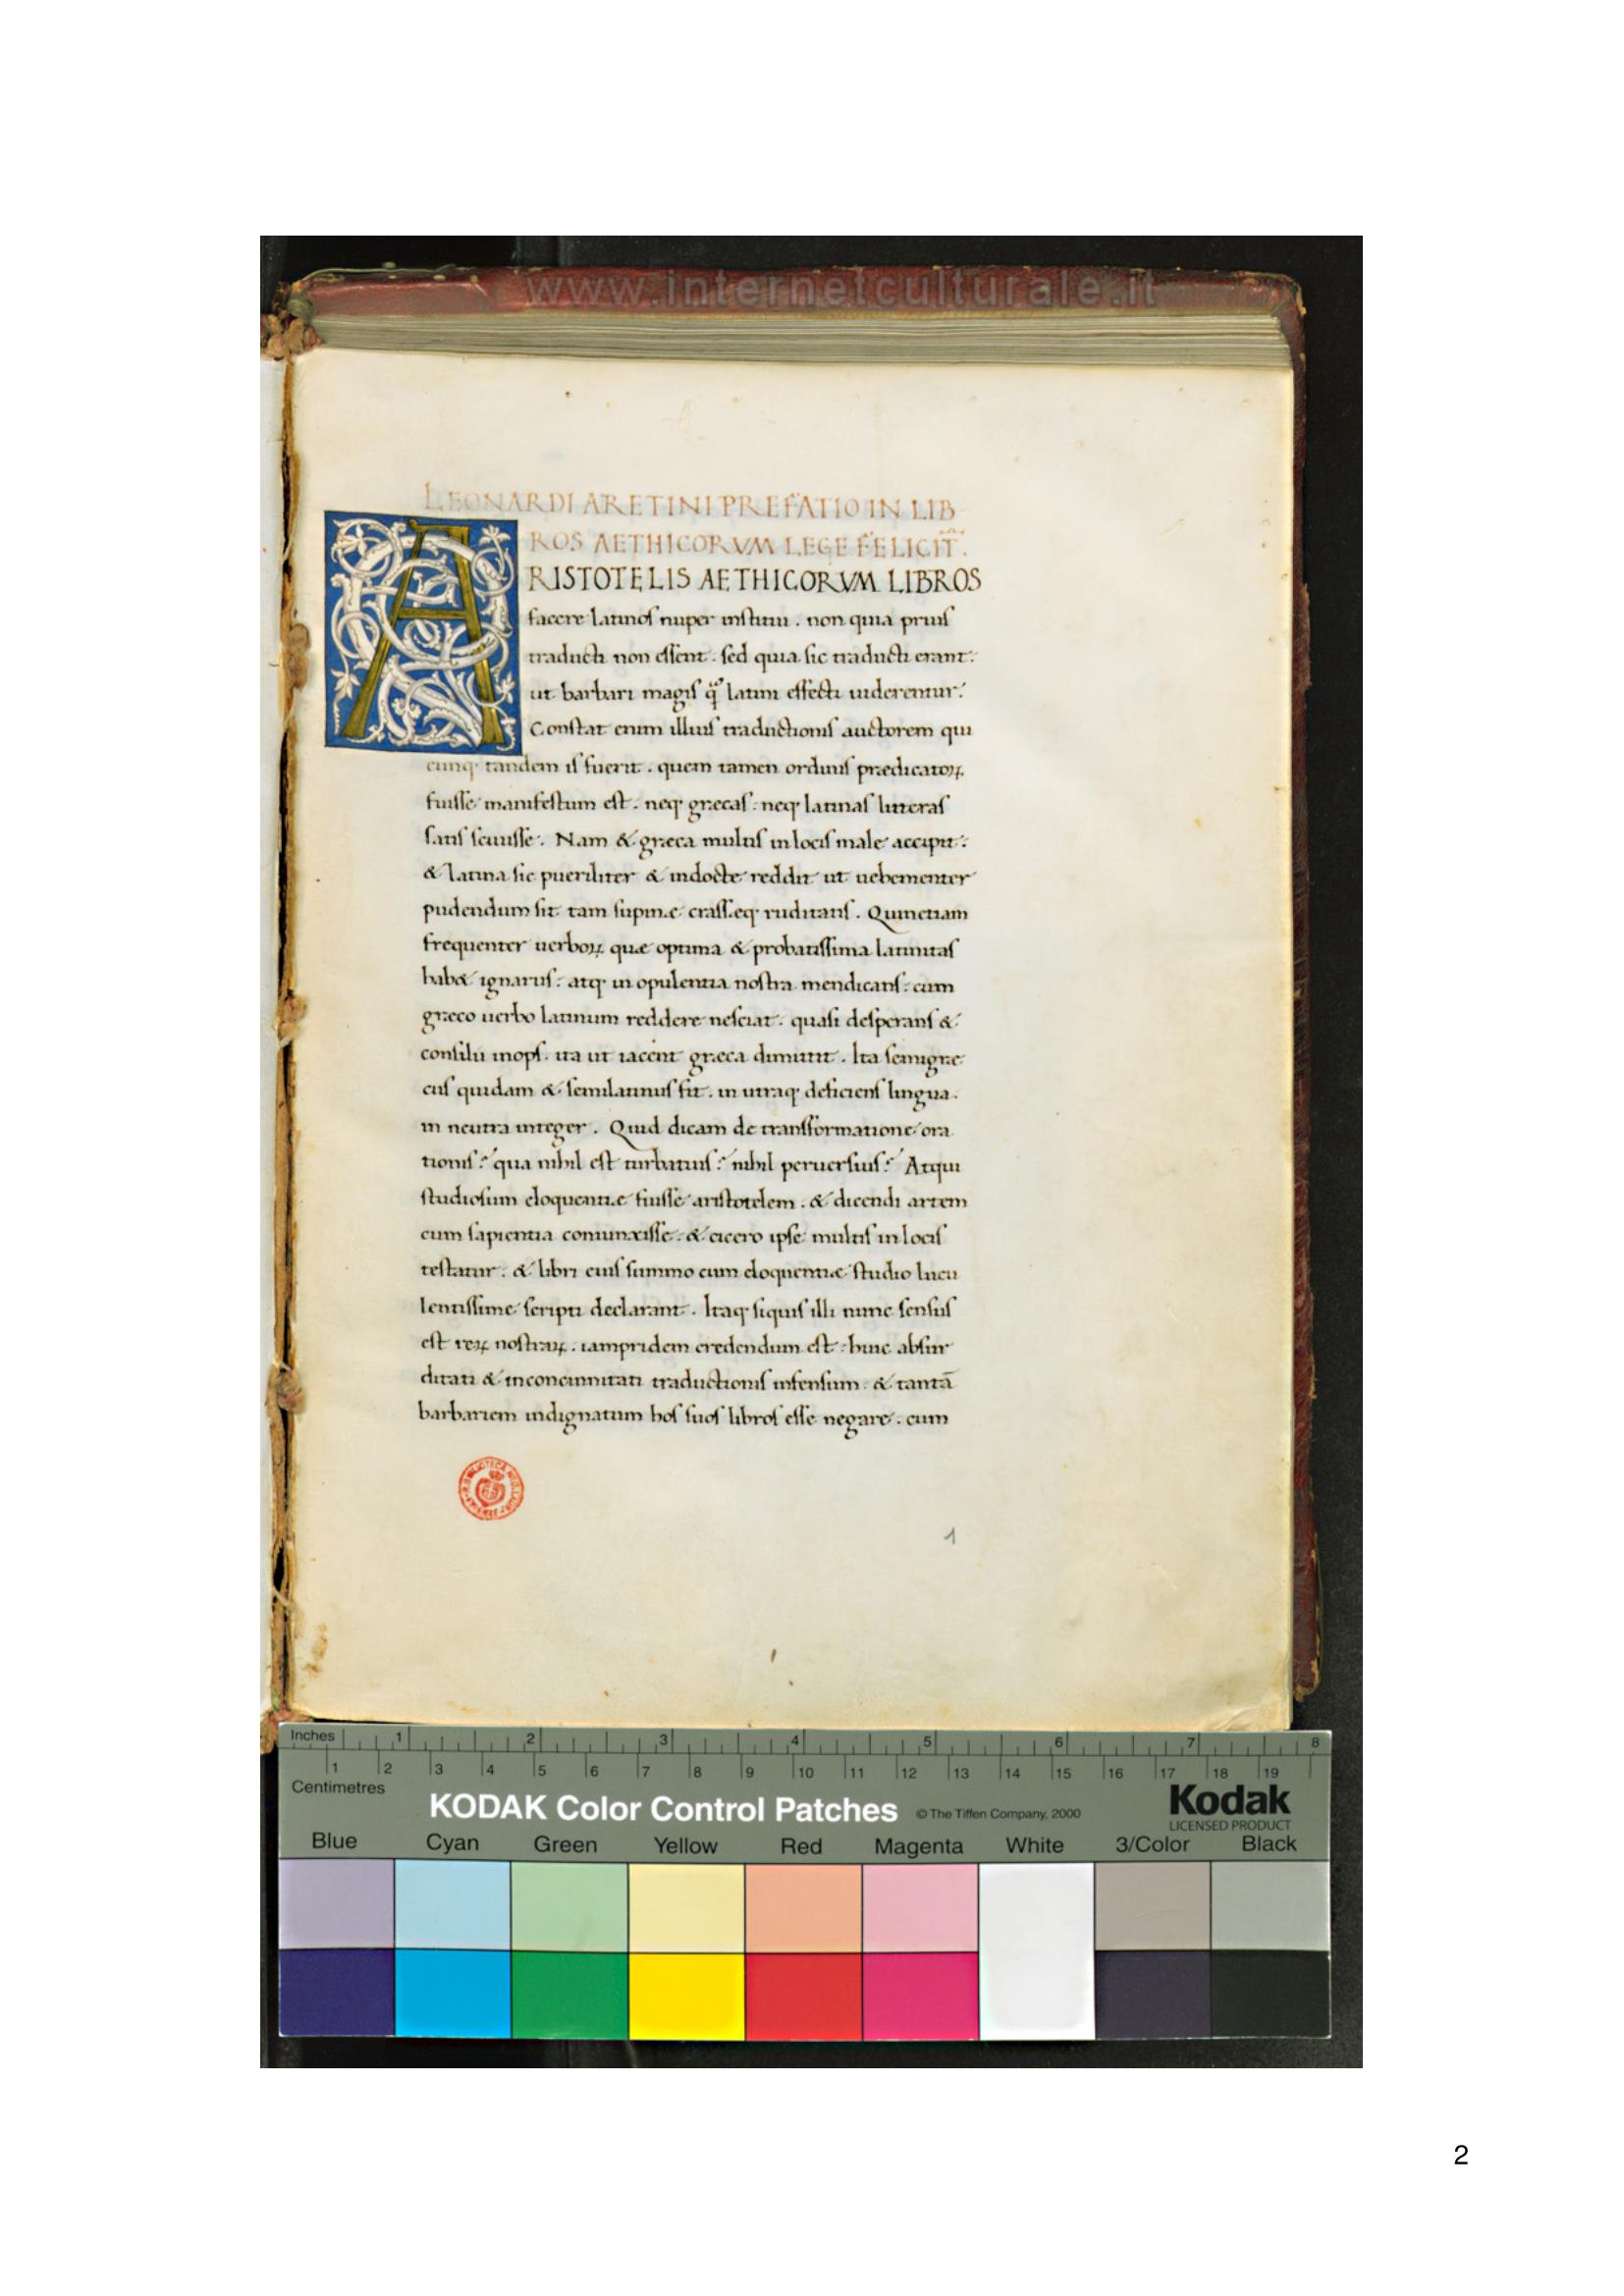 www.internetculturale.it
LEONARDI ARETINI PREFATIO IN LIB
ROS AETHICORVM LEGE FELICIT̃.
ARISTOTELIS AETHICORVM LIBROS
facere latinos nuper institui . non quia prius
traducti non essent . sed quia sic traducti erant:
ut barbari magis q̃ latini effecti uiderentur.
Constat enim illius traductionis auctorem qui
cunq; tandem is fuerit . quem tamen ordinis prædicatoꝝ
fuisse manifestum est . neq; græcas: neq; latinas litteras
satis sciuisse . Nam & græca multis in locis male accipit:
& latina sic pueriliter & indocte reddit ut uehementer
pudendum sit tam supinæ crassæq; ruditatis . Quinetiam
frequenter uerboꝝ quæ optima & probatissima latinitas
hab& ignarus: atq; in opulentia nostra mendicans: cum
græco uerbo latinum reddere nesciat: quasi desperans &
consilii inops . ita ut iacent græca dimittit . Ita semigræ
cus quidam & semilatinus fit . in utraq; deficiens lingua .
in neutra integer . Quid dicam de transformatione ora
tionis? qua nihil est turbatius? nihil peruersius? Atqui
studiosum eloquentiæ fuisse aristotelem . & dicendi artem
cum sapientia coniunxisse: & cicero ipse multis in locis
testatur . & libri eius summo cum eloquentiæ studio lucu
lentissime scripti declarant . Itaq; siquis illi nunc sensus
est reꝝ nostraꝝ . iampridem credendum est: hinc absur
ditati & inconcinnitati traductionis infensum: & tantā
barbariem indignatum hos suos libros esse negare . cum
1
Inches 1 2 3 4 5 6 7 8
1 2 3 4 5 6 7 8 9 10 11 12 13 14 15 16 17 18 19
Centimetres
KODAK Color Control Patches © The Tiffen Company, 2000 Kodak
LICENSED PRODUCT
Blue Cyan Green Yellow Red Magenta White 3/Color Black
2